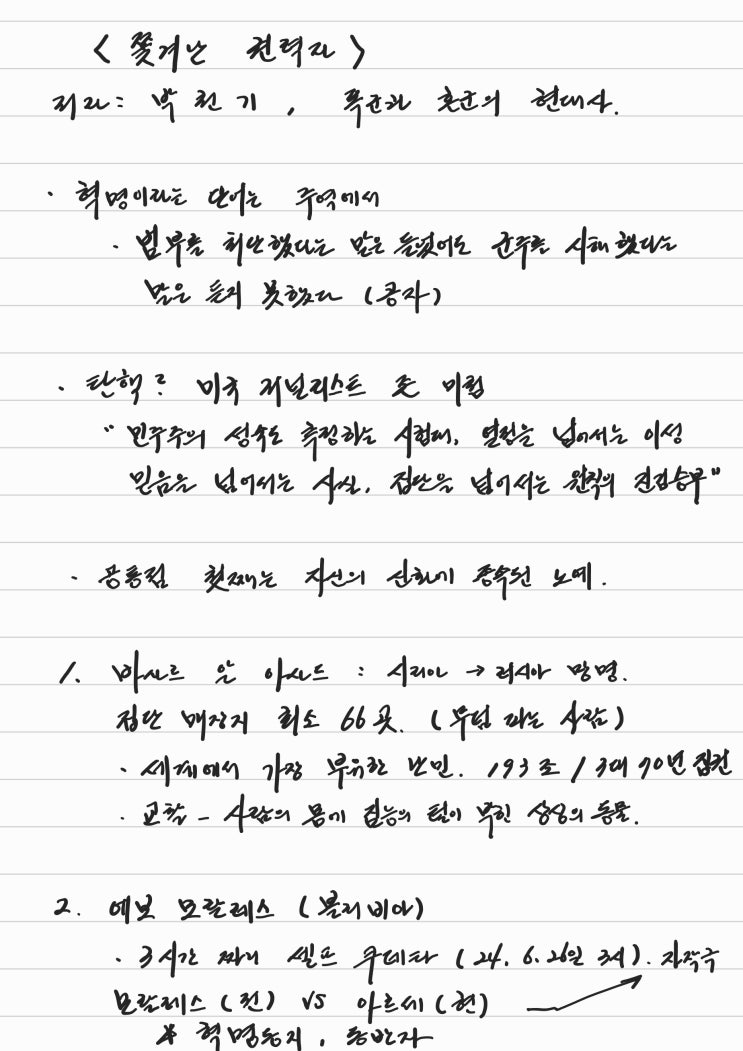 <쫓겨난 권력자>
저자: 박천기, 폭군과 혼군의 현대사.
· 혁명이라는 단어는 주역에서
· 범부를 처단했다는 말은 들었어도 군주를 시해했다는
말은 듣지 못했다 (공자)
· 탄핵? 미국 저널리스트 존 미첨
" 민주주의 성숙도 측정하는 시험대, 열정을 넘어서는 이성
믿음을 넘어서는 사실, 집단을 넘어서는 원칙의 진검승부"
· 공통점 첫째는 자신의 신화에 종속된 노예.
1. 바샤르 알 아사드 : 시리아 → 러시아 망명.
집단 매장지 최소 66곳. (무덤 파는 사람)
· 세계에서 가장 부유한 난민. 193조 / 3대 90년 집권
· 교활 - 사람의 몸에 짐승의 털이 무힌 상상의 동물.
2. 에보 모랄레스 (볼리비아)
· 3시간 짜리 셀프 쿠데타 (24. 6. 26일 3시). 자작극
모랄레스 (전) VS 아르세 (현)
* 혁명동지, 동반자